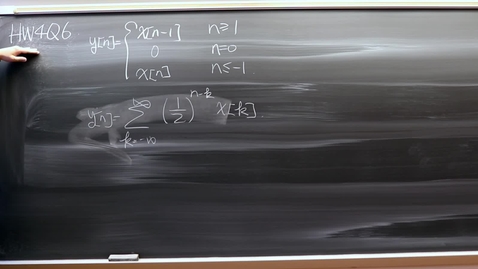 HW4Q6
y[n]= { x[n-1] n≥1
0 n=0
x[n] n≤-1
y[n]= ∞ ∑ k=-∞ (1/2)^{n-k} x[k]